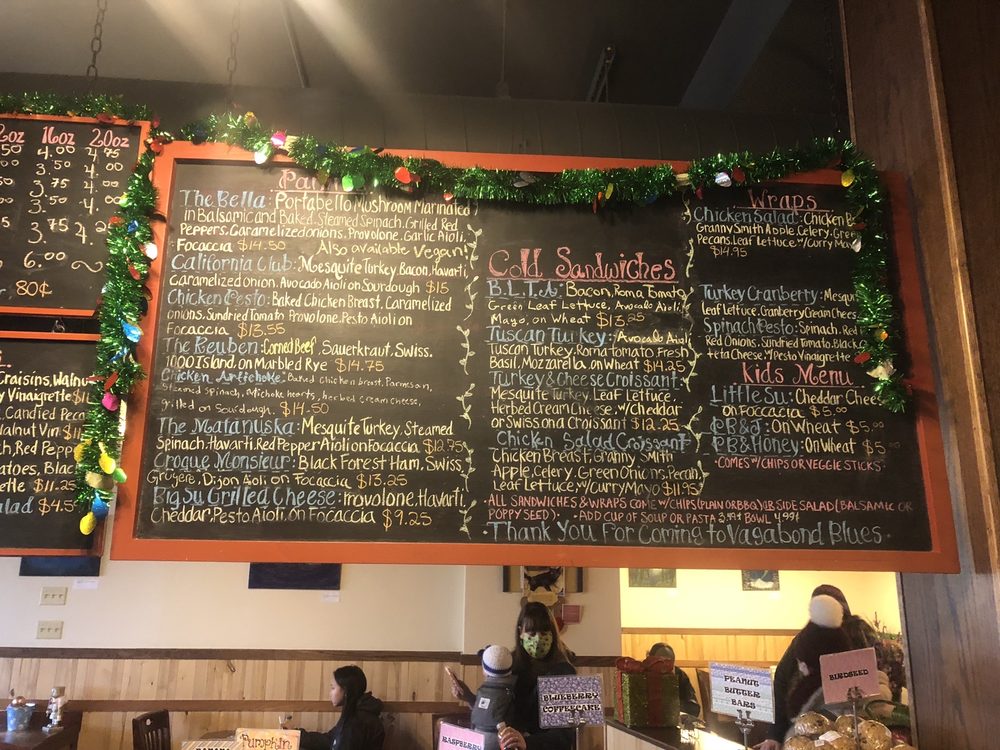 16oz 20oz
4.00 4.75
3.50 4.
3.75 4.
3.50 4.
3. 4.
6.00
80¢
Craisins, Walnu
Vinaigrette
Candied Peca
Walnut Vin $11
Red Pepp
atoes, Black
ette $11.25
Salad $4.5
The Bella: Portabello Mushroom Marinated
in Balsamic and Baked. Steamed Spinach, Grilled Red
Peppers, Caramelized onions, Provolone, Garlic Aioli,
Focaccia $14.50 Also available Vegan!
California Club: Mesquite Turkey, Bacon, Havarti,
Caramelized onion, Avocado Aioli on Sourdough $15
Chicken Pesto: Baked Chicken Breast, Caramelized
onions, Sundried Tomato Provolone, Pesto Aioli on
Focaccia $13.55
The Reuben: Corned Beef, Sauerkraut, Swiss,
1000 Island, on Marbled Rye $14.75
Chicken Artichoke: Baked chicken breast, Parmesan,
spinach, artichoke hearts, herbed cream cheese,
grilled on Sourdough. $14.50
The Matanuska: Mesquite Turkey, Steamed
Spinach, Havarti, Red Pepper Aioli on Focaccia $12.95
Croque Monsieur: Black Forest Ham, Swiss,
Gruyere, Dijon Aioli on Focaccia $13.25
Big Su Grilled Cheese: Provolone, Havarti,
Cheddar, Pesto Aioli on Focaccia $9.25
Cold Sandwiches
B.L.T.A: Bacon, Roma Tomato,
Green Leaf Lettuce, Avocado Aioli,
Mayo, on Wheat
Tuscan Turkey: Avocado Aioli,
Tuscan Turkey, Roma tomato Fresh
Basil, Mozzarella, on Wheat $14.25
Turkey & Cheese Croissant:
Mesquite Turkey, Leaf Lettuce,
Herbed Cream Cheese, w/Cheddar
or Swiss on a Croissant $12.25
Chicken Salad Croissant:
Chicken Breast, Granny Smith
Apple, Celery, Green Onions, Pecan,
Leaf Lettuce, w/Curry Mayo $11.95
Wraps
Chicken Salad: Chicken B
Granny Smith Apple, Celery, Gree
Pecans, Leaf Lettuce, w/Curry Mayo
$14.95
Turkey Cranberry: Mesqui
Leaf Lettuce, Cranberry Cream Chees
Spinach Pesto: Spinach, Red
Red Onions, Sundried Tomato, Black
feta Cheese, w/Pesto Vinaigrette
Kids Menu
Little Su: Cheddar Chees
on Foccaccia $5.00
PB&J: On Wheat $5.00
PB & Honey: On Wheat $5.
*Comes w/ chips or veggie sticks*
·All sandwiches & wraps come w/ chips (plain or BBQ) or side salad (balsamic or
poppy seed). -Add cup of soup or pasta 3.99¢ bowl 4.99¢
·Thank You For Coming to Vagabond Blues·
BLUEBERRY
COFFEECAKE
PEANUT
BUTTER
BARS
BIRDSEED
Pumpkin
RASPBERRY